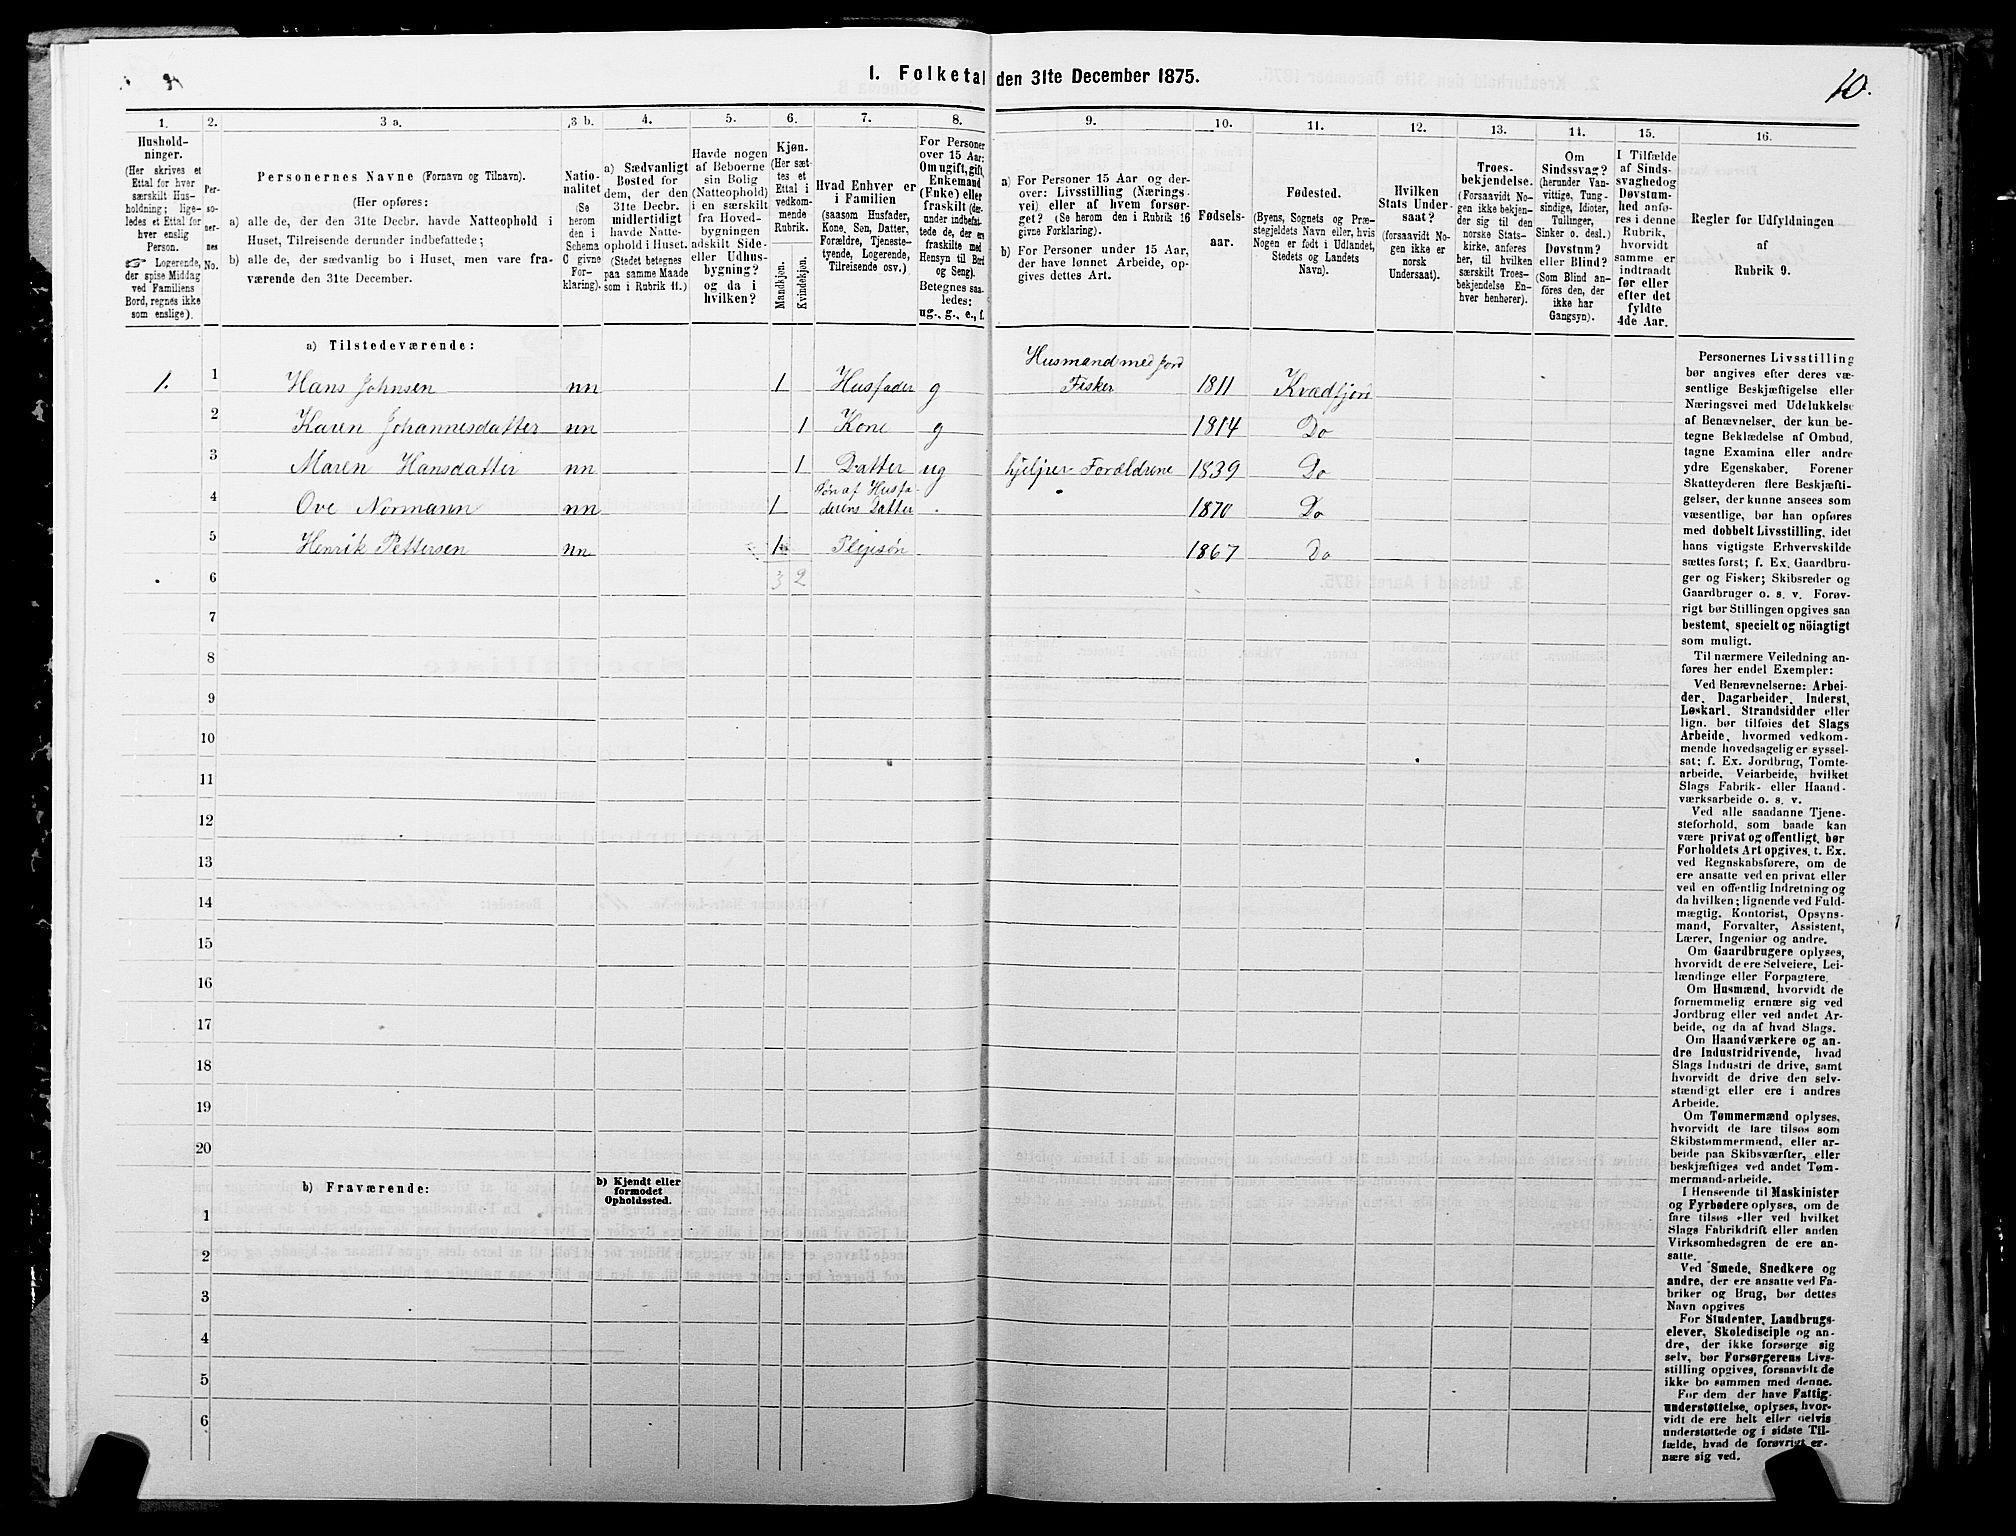 I. Folketal den 31te December 1875.
10.
1. 2. 3 a. 3 b. 4. 5. 6. 7. 8. 9. 10. 11. 12. 13. 14. 15. 16.
Hushold-
ninger.
(Her skrives et
Ettal for hver
særskilt Hus-
holdning; lige-
ledes et Ettal for
hver enslig
Person.
☞ Logerende,
der spise Middag
ved Familiens
Bord, regnes ikke
som enslige).
Per-
so-
ner-
nes
No.
Personernes Navne (Fornavn og Tilnavn).
(Her opføres:
a) alle de, der den 31te Decbr. havde Natteophold i
Huset, Tilreisende derunder indbefattede;
b) alle de, der sædvanlig bo i Huset, men vare fra-
værende den 31te December.
Natio-
nalitet
(Se
herom
den i
Schema
C givne
For-
klaring).
a) Sædvanligt
Bosted for
dem, der den
31te Decbr.
midlertidigt
havde Natte-
ophold i Huset.
(Stedet betegnes
paa samme Maade
som i Rubrik 11.)
Havde nogen
af Beboerne
sin Bolig
(Natteophold)
i en særskilt
fra Hoved-
bygningen
adskilt Side-
eller Udhus-
bygning?
og da i
hvilken?
Kjøn.
(Her sæt-
tes et
Ettal i
vedkom-
mende
Rubrik.
Mandkjøn.
Kvindekjøn.
Hvad Enhver er
i Familien
(saasom Husfader,
Kone, Søn, Datter,
Forældre, Tjeneste-
tyende, Logerende,
Tilreisende osv.)
For Personer
over 15 Aar:
Om ugift, gift,
Enkemand
(Enke) eller
fraskilt (der-
under indbefat-
tede de, der ere
fraskilte med
Hensyn til Bord
og Seng).
Betegnes saa-
ledes:
ug., g., e., f.
a) For Personer 15 Aar og der-
over: Livsstilling (Nærings-
vei) eller af hvem forsør-
get? (Se herom den i Rubrik 16
givne Forklaring).
b) For Personer under 15 Aar,
der have lønnet Arbeide, op-
gives dettes Art.
Fødsels-
aar.
Fødested.
(Byens, Sognets og Præ-
stegjeldets Navn eller, hvis
Nogen er født i Udlandet,
Stedets og Landets
Navn).
Hvilken
Stats Under-
saat?
(forsaavidt No-
gen ikke er
norsk
Undersaat).
Troes-
bekjendelse.
(Forsaavidt No-
gen ikke bekjen-
der sig til den
norske Stats-
kirke, anføres
her, til hvilken
særskilt Troes-
bekjendelse En-
hver henhører).
Om
Sindssvag?
(herunder Van-
vittige, Tung-
sindige, Idioter,
Tullinger,
Sinker o. desl.)
Døvstum?
eller Blind?
(Som Blind an-
føres den, der
ikke har
Gangsyn).
I Tilfælde
af Sinds-
svaghed og
Døvstum-
hed anfø-
res i denne
Rubrik,
hvorvidt
samme er
indtraadt
før eller
efter det
fyldte
4de Aar.
Regler for Udfyldningen
af
Rubrik 9.
a) Tilstedeværende:
1. 1 Hans Johnsen nn 1 Husfader g Husmand med Jord Fisker 1811 Kvædfjord
2 Karen Johannesdatter nn 1 Kone g 1814 Do
3 Maren Hansdatter nn 1 Datter ug hjelper Forældrene 1839 Do
4 Ove Normann nn 1 Søn af Husfa-
derens Datter 1870 Do
5 Henrik Pettersen nn 1 Plejesøn 1867 Do
6 3 2
7
8
9
10
11
12
13
14
15
16
17
18
19
20
b) Fraværende:
b) Kjendt eller
formodet
Opholdssted.
1
2
3
4
5
6
Personernes Livsstilling
bør angives efter deres væ-
sentlige Beskjæftigelse eller
Næringsvei med Udelukkelse
af Benævnelser, der kun be-
tegne Beklædelse af Ombud,
tagne Examina eller andre
ydre Egenskaber. Forener
Skatteyderen flere Beskjæfti-
gelser, der kunne ansees som
væsentlige, bør han opføres
med dobbelt Livsstilling, idet
hans vigtigste Erhvervskilde
sættes først; f. Ex. Gaardbru-
ger og Fisker; Skibsreder og
Gaardbruger o. s. v. Forøv-
rigt bør Stillingen opgives saa
bestemt, specielt og nöiagtigt
som muligt.
Til nærmere Veiledning an-
føres her endel Exempler:
Ved Benævnelserne: Arbei-
der, Dagarbeider, Inderst,
Løskarl, Strandsidder eller
lign. bør tilføies det Slags
Arbeide, hvormed vedkom-
mende hovedsagelig er syssel-
sat; f. Ex. Jordbrug, Tomte-
arbeide, Veiarbeide, hvilket
Slags Fabrik- eller Haand-
værksarbeide o. s. v.
Ved alle saadanne Tjene-
steforhold, som baade kan
være privat og offentligt, bør
Forholdets Art opgives, f. Ex.
ved Regnskabsførere, om de
ere ansatte ved en privat eller
ved en offentlig Indretning og
da hvilken; lignende ved Fuld-
mægtig, Kontorist, Opsyns-
mand, Forvalter, Assistent,
Lærer, Ingeniør og andre.
Om Gaardbrugere oplyses,
hvorvidt de ere Selveiere, Lei-
lændinge eller Forpagtere.
Om Husmænd, hvorvidt de
fornemmelig ernære sig ved
Jordbrug eller ved andet Ar-
beide, og da af hvad Slags.
Om Haandværkere og an-
dre Industridrivende, hvad
Slags Industri de drive, samt
hvorvidt de drive den selv-
stændigt eller ere i andres
Arbeide.
Om Tømmermænd oplyses,
hvorvidt de fare tilsøs som
Skibstømmermænd, eller ar-
beide paa Skibsværfter, eller
beskjæftiges ved andet Tøm-
mermand-arbeide.
I Henseende til Maskinister
og Fyrbødere oplyses, om de
fare tilsøs eller ved hvilket
Slags Fabrikdrift eller anden
Virksomhedsgren de ere an-
satte.
Ved Smede, Snedkere og
andre, der ere ansatte ved Fa-
briker og Brug, bør dettes
Navn opgives
For Studenter, Landbrugs-
elever, Skoledisciple og an-
dre, der ikke forsørge sig
selv, bør Forsørgerens Livs-
stilling opgives, forsaavidt de
ikke bo sammen med denne.
For dem der have Fattig-
understøttelse, oplyses, hvor-
vidt de ere helt eller delvis
understøttede og i sidste Til-
fælde, hvad de forøvrigt er-
nære sig ved.